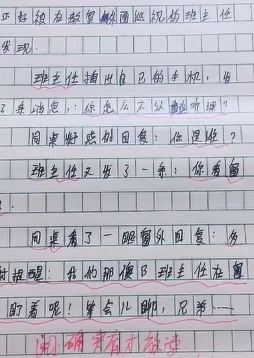 正好被在教室外面巡视的班主任
发现.
班主任掏出自己的手机,发
了条消息:你怎么不好听课?
同桌好奇的回复:你是谁?
班主任又发了一条:你看窗
.
同桌看了一眼窗外回复:多
谢提醒:我的那傻B班主任在窗
盯着呢!等会儿聊,兄弟…